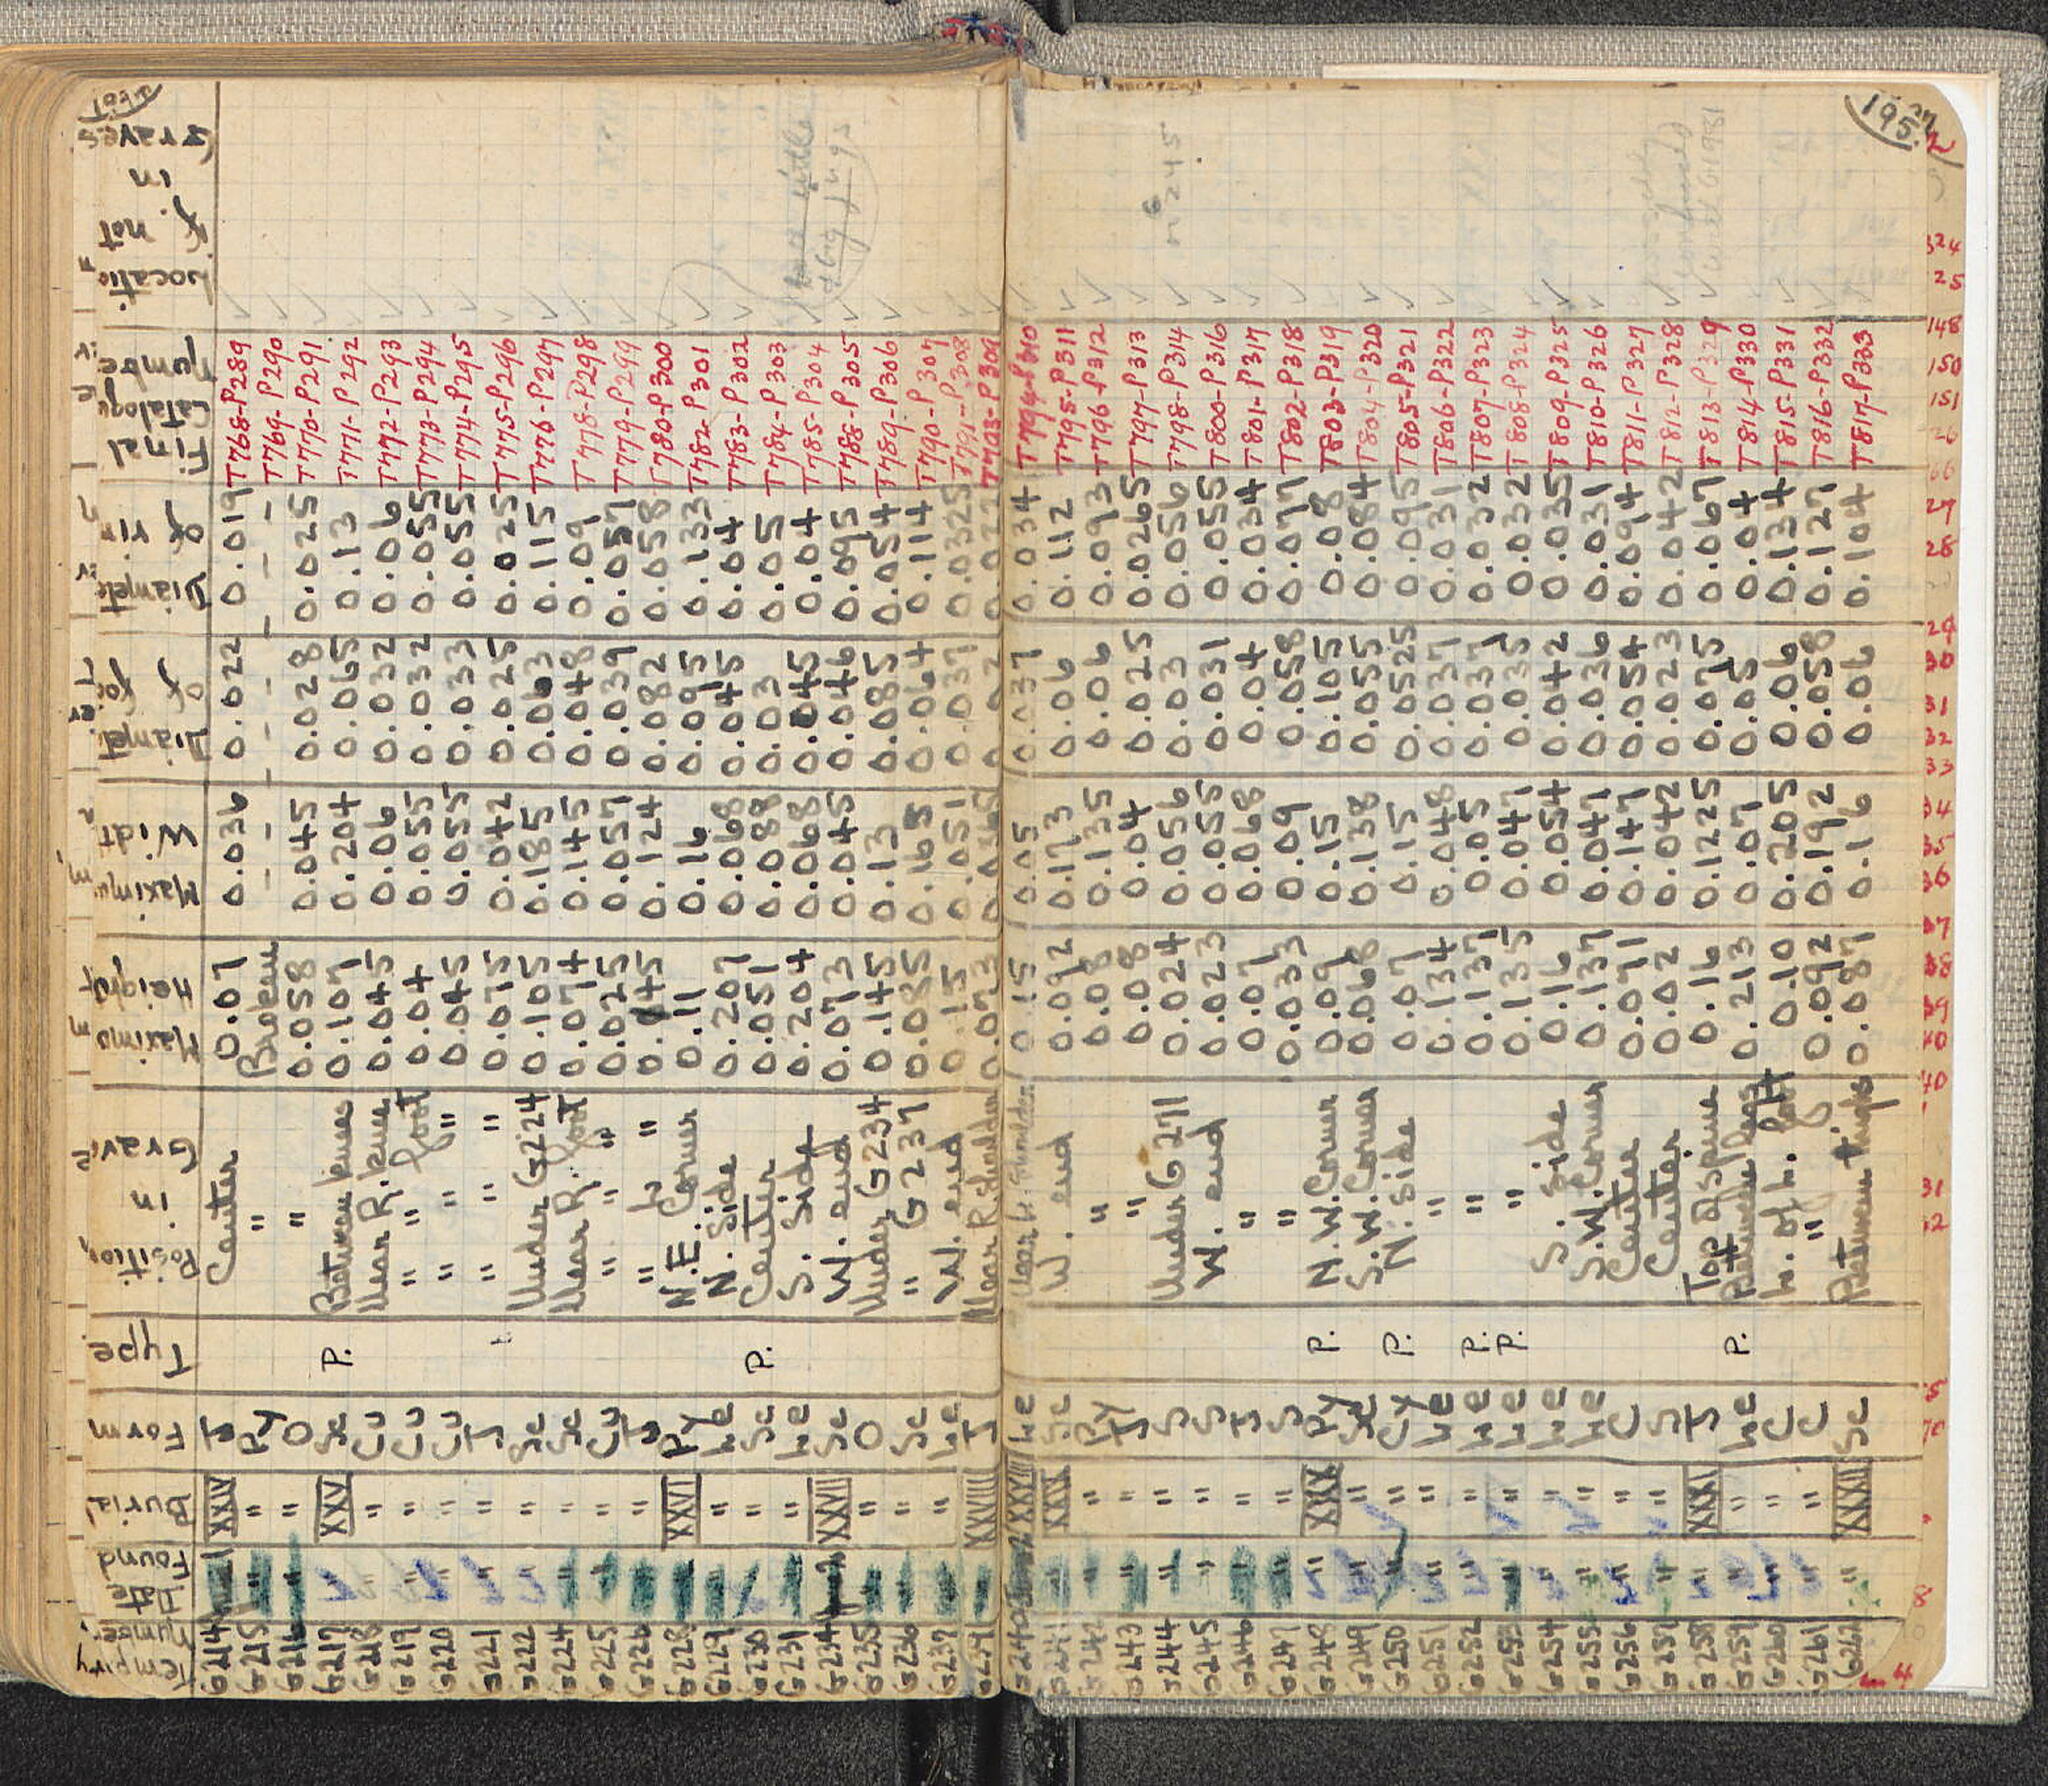 Temp'ry Number Date Found Burial Form Type Position in Grave Maximum Height Maximum Width Diamet. of foot Diameter of rim Final Catalogue Number Location if not in Graves
G214 XXIV T Center 0.07 0.036 0.022 0.019 T768-P289
G215 " " PY " Broken - - - T769-P290
G216 " " O " 0.058 0.045 0.028 0.025 T770-P291
G217 XXV Sc P. Between knees 0.107 0.204 0.065 0.13 T771-P292
G218 " " Cu Near R. knee 0.045 0.06 0.032 0.06 T772-P293
G219 " " Cu " " foot 0.04 0.055 0.032 0.055 T773-P294
G220 " " Cu " " " 0.045 0.055 0.033 0.055 T774-P295
G221 " " T " " " 0.075 0.042 0.025 0.025 T775-P296
G222 " " Sc Under G224 0.105 0.185 0.063 0.115 T776-P297
G224 " " Sc Near R. foot 0.074 0.145 0.048 0.09 T778-P298
G225 " " Cu " " " 0.025 0.057 0.039 0.057 T779-P299
G226 " " T " L. " 0.145 0.124 0.082 0.058 T780-P300
G228 " XXVI PY N.E. Corner 0.11 0.16 0.095 0.133 T782-P301
G229 " " Le N. Side 0.207 0.068 0.045 0.04 T783-P302
G230 " " Sc P. Center 0.051 0.088 0.03 0.05 T784-P303
G231 " " Le S. Side 0.204 0.068 0.045 0.04 T785-P304
G234 XXVII Sc W. end 0.073 0.045 0.046 0.095 T788-P305
G235 " " O Under G234 0.145 0.13 0.085 0.054 T789-P306
G236 " " Sc " G237 0.085 0.165 0.064 0.114 T790-P307
G237 " " Le W. end 0.15 0.051 0.037 0.0325 T791-P308
G239 " XXVIII T Near R. Shoulder 0.073 0.0365 0.02 0.022 T793-P309
195
G240 XXVIII Le Near L. Shoulder 0.15 0.05 0.037 0.034 T794-P310
G241 " XXIX Sc W. end 0.092 0.173 0.06 0.112 T795-P311
G242 " " PY " 0.08 0.135 0.06 0.093 T796-P312
G243 " " T " 0.08 0.04 0.025 0.0265 T797-P313
G244 " " S Under G271 0.024 0.056 0.03 0.056 T798-P314
G245 " " S W. end 0.023 0.055 0.031 0.055 T800-P316
G246 " " T " 0.07 0.068 0.04 0.034 T801-P317
G247 " " S " 0.033 0.09 0.058 0.077 T802-P318
G248 " XXX PY P. N.W. Corner 0.09 0.15 0.105 0.08 T803-P319
G249 " " Sc S.W. Corner 0.068 0.138 0.055 0.084 T804-P320
G250 " " CY P. N. Side 0.07 0.15 0.0525 0.095 T805-P321
G251 " " Le " 0.134 0.048 0.037 0.031 T806-P322
G252 " " Le P. " 0.137 0.05 0.037 0.032 T807-P323
G253 " " Le P. " 0.135 0.047 0.035 0.032 T808-P324
G254 " " Le S. Side 0.16 0.054 0.042 0.035 T809-P325
G255 " " Le S.W. Corner 0.137 0.047 0.036 0.031 T810-P326
G256 " " C Center 0.071 0.147 0.054 0.094 T811-P327
G257 " " S Center 0.02 0.042 0.023 0.042 T812-P328
G258 " XXXI T Top of Spine 0.16 0.1225 0.075 0.067 T813-P329
G259 " " Le P. Between legs 0.213 0.07 0.05 0.04 T814-P330
G260 " " C L. of L. foot 0.10 0.205 0.06 0.134 T815-P331
G261 " " C " 0.092 0.192 0.058 0.127 T816-P332
G262 " XXXII Sc Between thighs 0.087 0.16 0.06 0.104 T817-P333
324
25
148
150
151
26
27
28
29
30
31
32
33
34
35
36
37
38
39
40